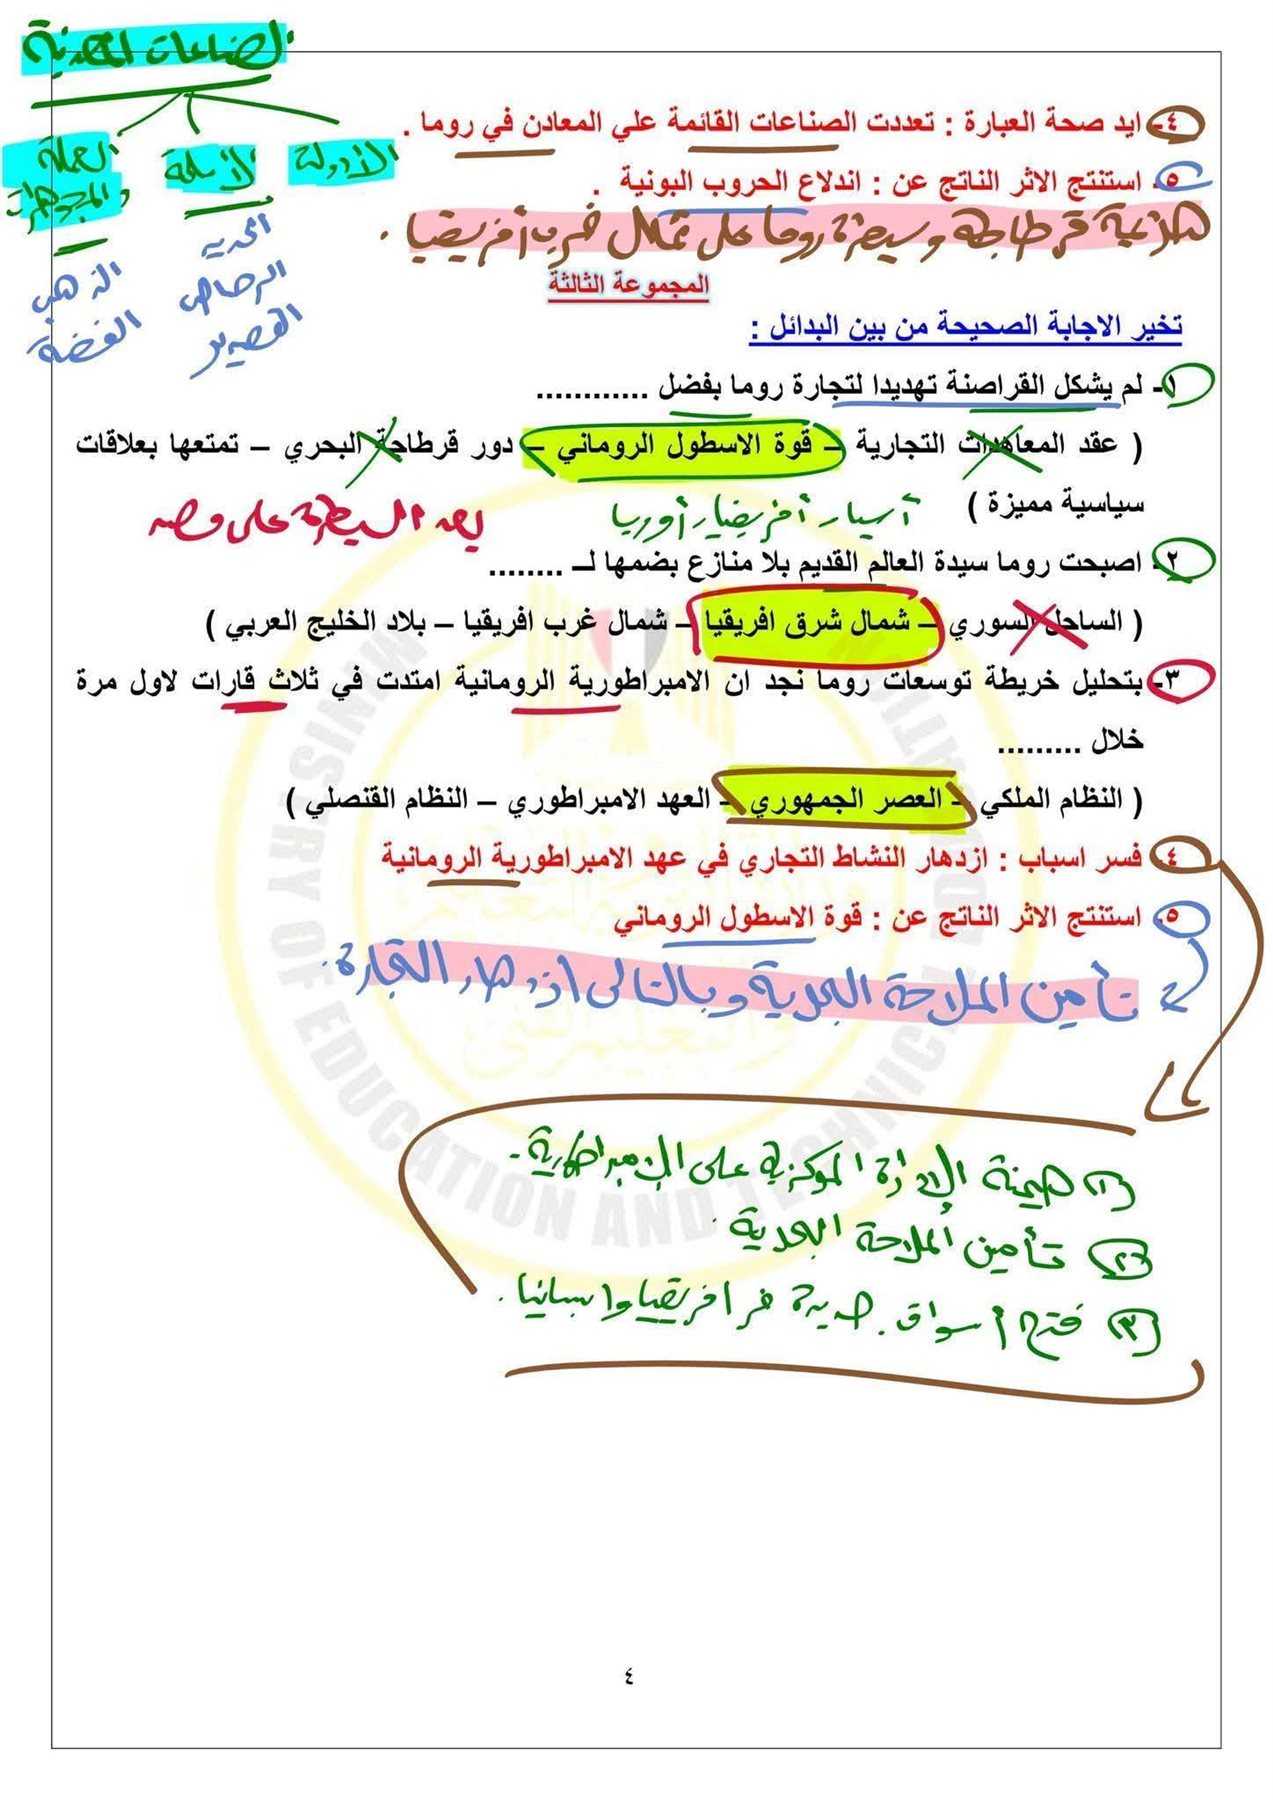 الصناعات المعدنية
الأدوات
الأسلحة
العملة
والمجوهرات
الحديد
الرصاص
القصدير
الذهب
الفضة
٤- ايد صحة العبارة : تعددت الصناعات القائمة علي المعادن في روما .
٥- استنتج الاثر الناتج عن : اندلاع الحروب البونية .
قرطاجة وسيطرة روما على شمال غرب أفريقيا .
المجموعة الثالثة
تخير الاجابة الصحيحة من بين البدائل :
١- لم يشكل القراصنة تهديدا لتجارة روما بفضل ............
( عقد المعاهدات التجارية – قوة الاسطول الروماني – دور قرطاجة البحري – تمتعها بعلاقات
سياسية مميزة )
آسيا، أفريقيا، أوربا
بعد السيطرة على مصر
٢- اصبحت روما سيدة العالم القديم بلا منازع بضمها لـ ........
( الساحل السوري – شمال شرق افريقيا – شمال غرب افريقيا – بلاد الخليج العربي )
٣- بتحليل خريطة توسعات روما نجد ان الامبراطورية الرومانية امتدت في ثلاث قارات لاول مرة
خلال .........
( النظام الملكي – العصر الجمهوري – العهد الامبراطوري – النظام القنصلي )
٤- فسر اسباب : ازدهار النشاط التجاري في عهد الامبراطورية الرومانية
٥- استنتج الاثر الناتج عن : قوة الاسطول الروماني
تأمين الملاحة البحرية وبالتالى ازدهار التجارة.
(١) هيمنة الإدارة المركزية على الإمبراطورية.
(٢) تأمين الملاحة البحرية
(٣) فتح أسواق جديدة فى افريقيا واسبانيا.
MINISTRY OF EDUCATION AND TECHNICAL EDUCATION
٤